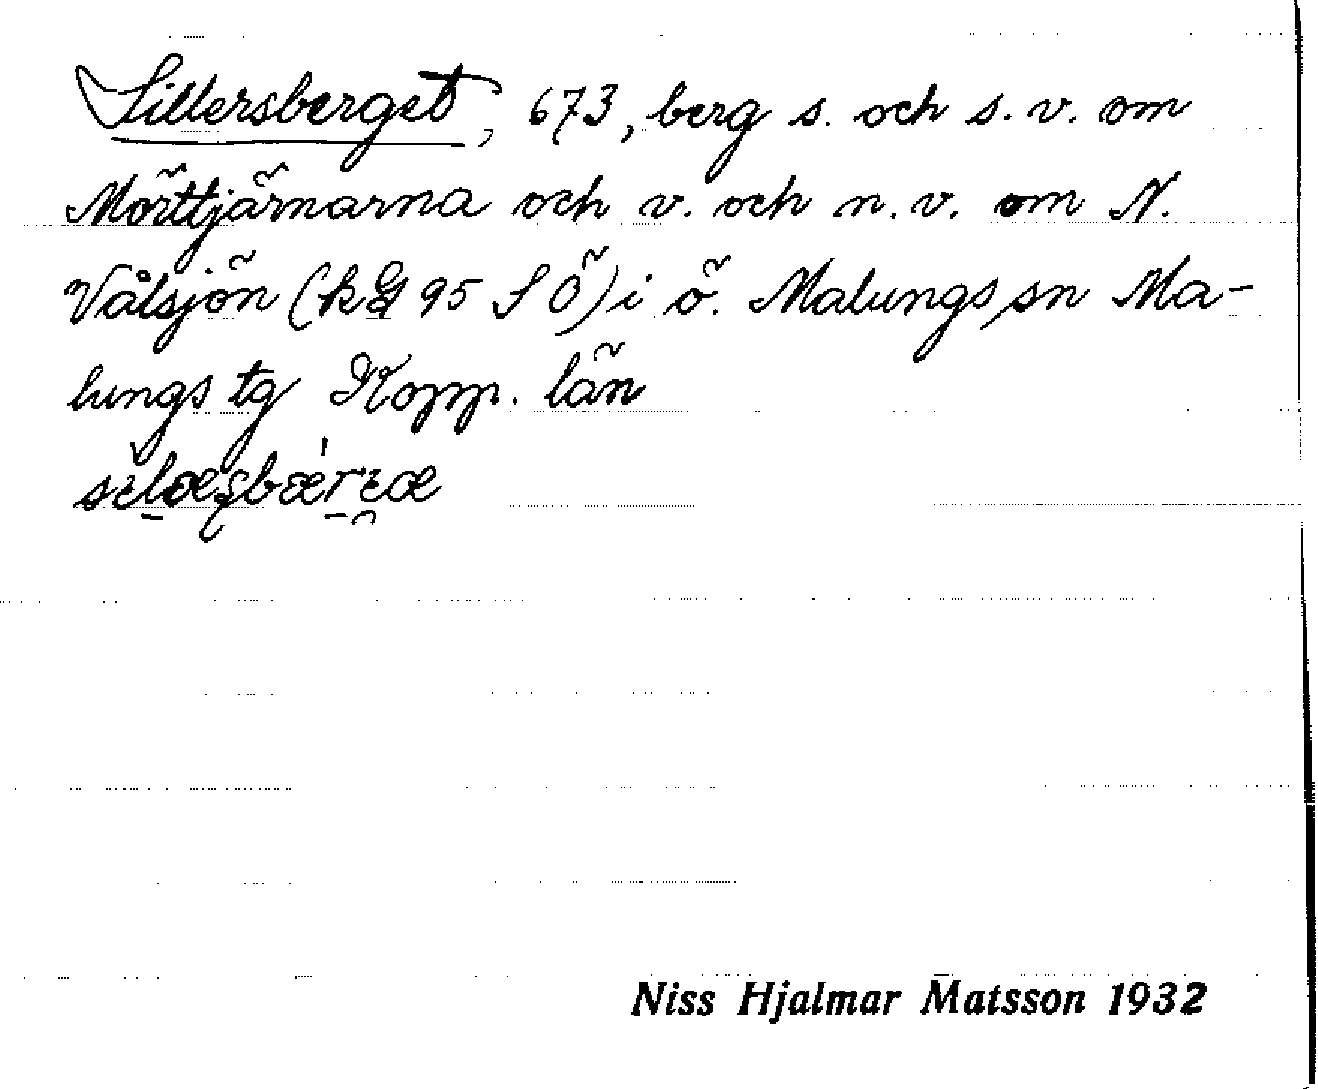 Sillersberget, 673, berg s. och s.v. om
Mörttjärnarna och v. och n.v. om N.
Vålsjön (kG 95 S Ö) i ö. Malungs sn Ma-
lungs tg Kopp. län
Niss Hjalmar Matsson 1932